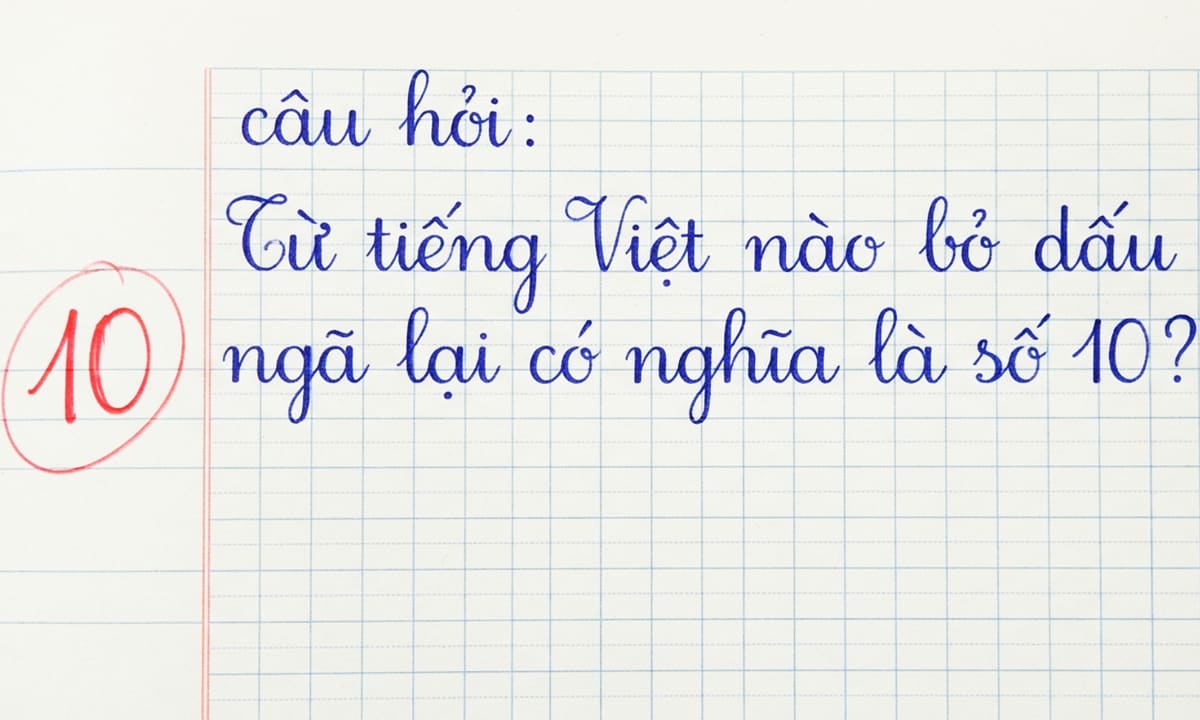 câu hỏi:
Từ tiếng Việt nào bỏ dấu
ngã lại có nghĩa là số 10?
10